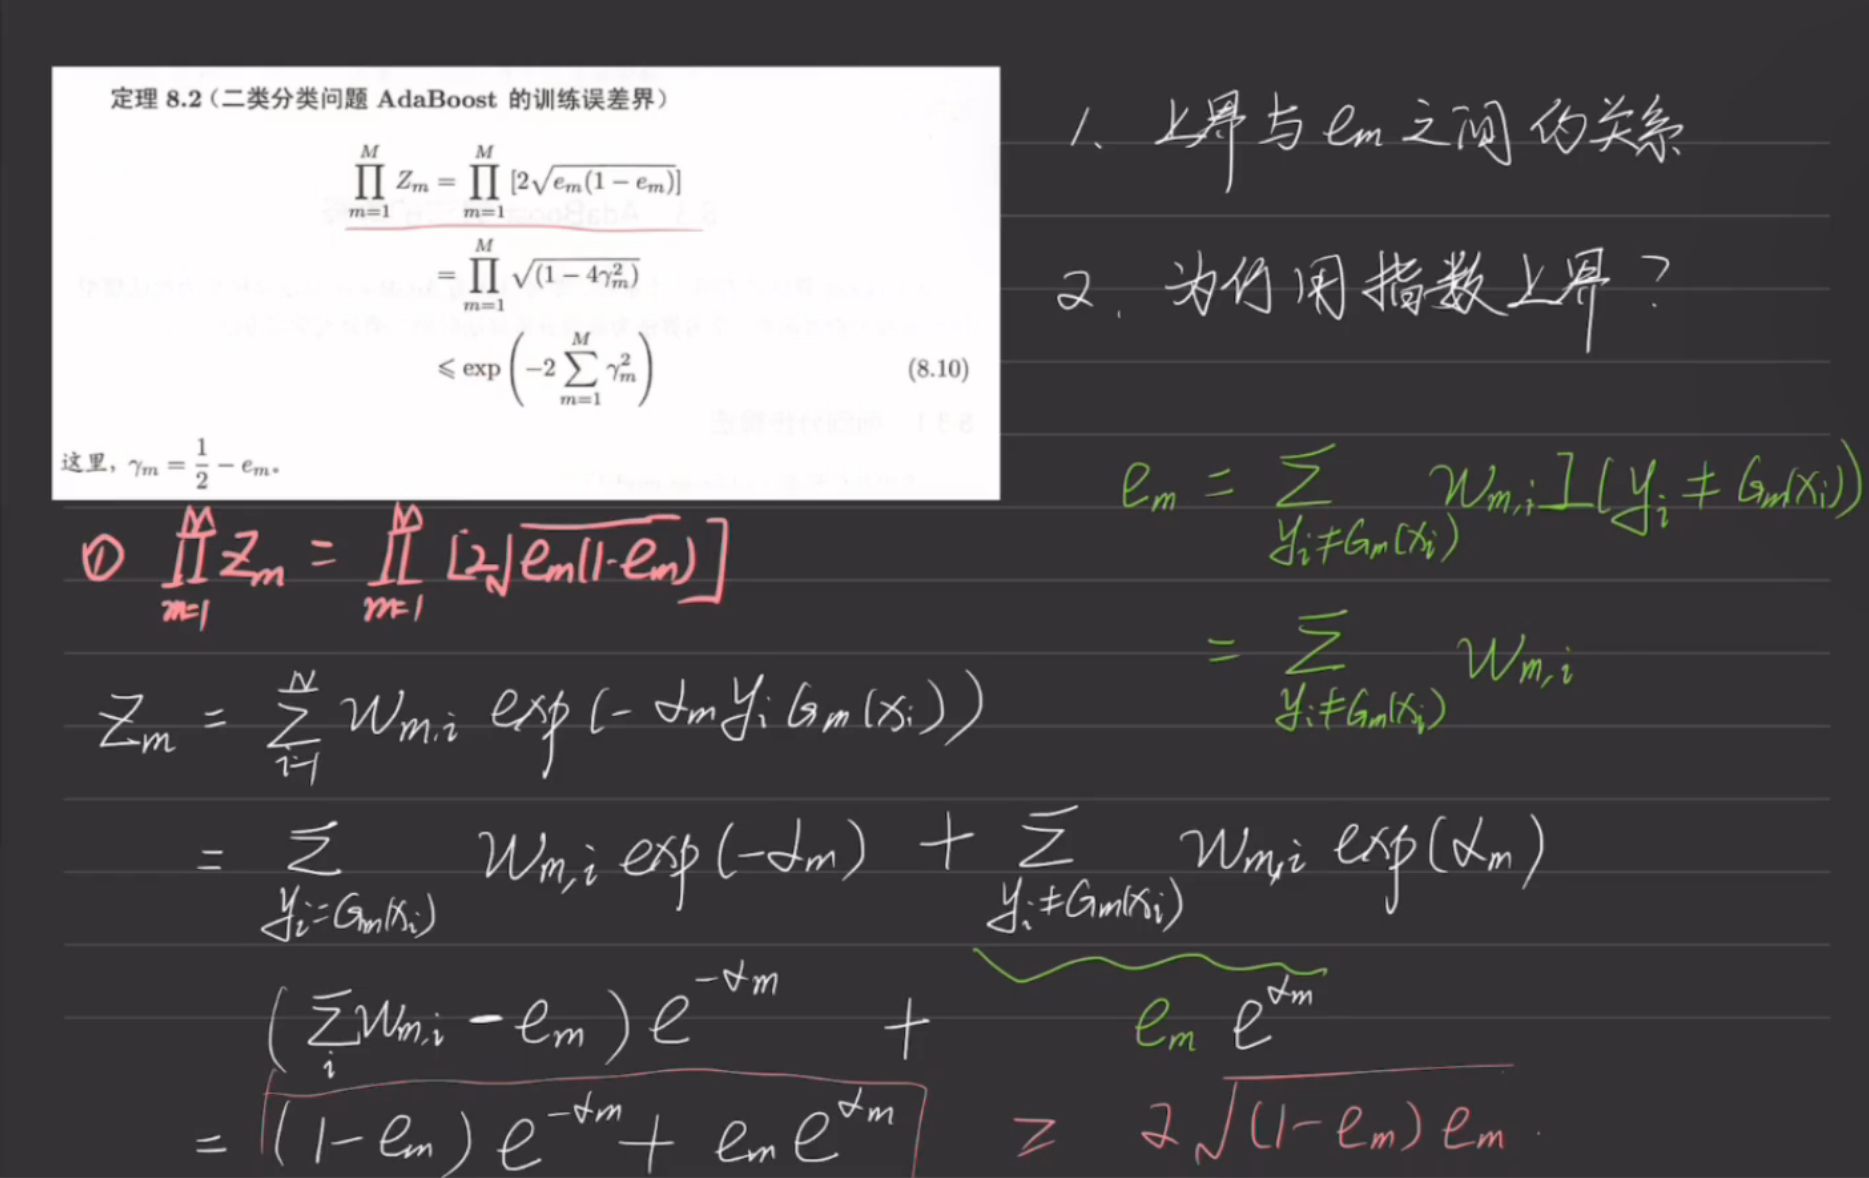 定理 8.2（二类分类问题 AdaBoost 的训练误差界）
∏_{m=1}^{M} Z_m = ∏_{m=1}^{M} [2√(e_m(1 − e_m))]
= ∏_{m=1}^{M} √(1 − 4γ_m^2)
⩽ exp(−2 ∑_{m=1}^{M} γ_m^2) (8.10)
这里, γ_m = 1/2 − e_m。
1. 上界与 e_m 之间的关系
2. 为何用指数上界?
e_m = ∑_{y_i≠G_m(x_i)} w_{m,i} I(y_i ≠ G_m(x_i))
= ∑_{y_i≠G_m(x_i)} w_{m,i}
① ∏_{m=1}^{M} Z_m = ∏_{m=1}^{M} [2√(e_m(1-e_m))]
Z_m = ∑_{i=1}^{N} w_{m,i} exp(-α_m y_i G_m(x_i))
= ∑_{y_i=G_m(x_i)} w_{m,i} exp(-α_m) + ∑_{y_i≠G_m(x_i)} w_{m,i} exp(α_m)
(∑_i w_{m,i} - e_m) e^{-α_m} + e_m e^{α_m}
= (1-e_m) e^{-α_m} + e_m e^{α_m} ≥ 2√((1-e_m) e_m) .